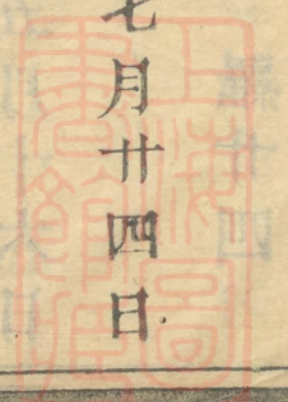 七月廿四日
上海圖
書館藏